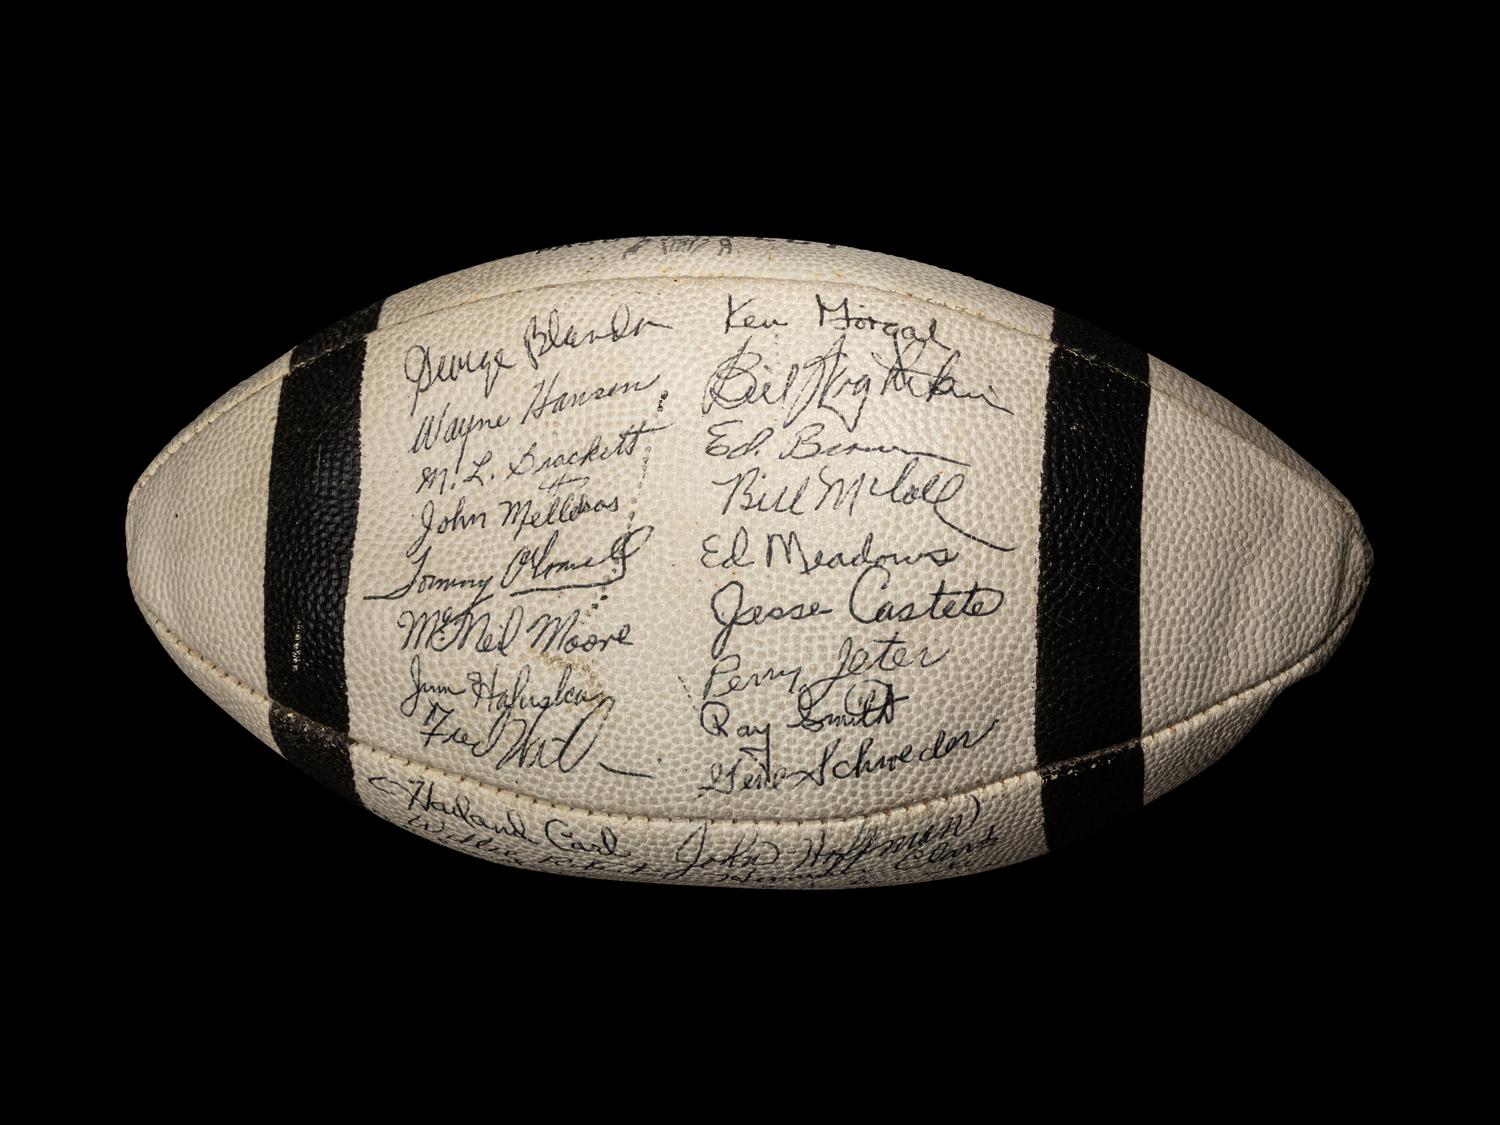 George Blanda
Wayne Hansen
M. L. Brackett
John Mellekas
Tommy O'Connell
McNeil Moore
Jim Haluska
Fred
Ken Gorgal
Bill
Ed. Brown
Bill McColl
Ed Meadows
Jesse Castete
Perry Jeter
Ray Smith
Gene Schroeder
Harland Carl
John Hoffman